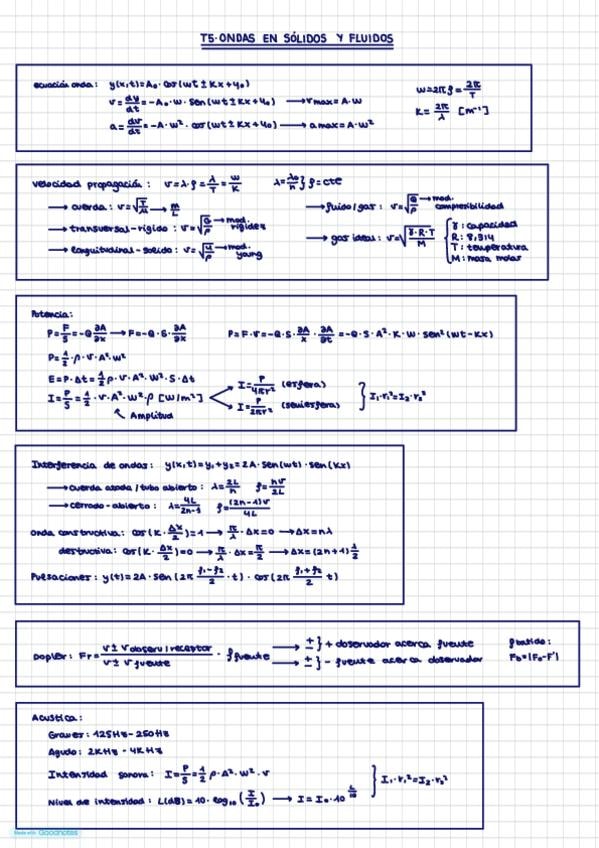 T5·ONDAS EN SÓLIDOS Y FLUIDOS
ecuación onda: y(x,t)=A₀·cos(wt±Kx+φ₀)
v=dy/dt=-A₀·w·sen(wt±Kx+φ₀) → vmax=A·w
a=dv/dt=-A·w²·cos(wt±Kx+φ₀) → amax=A·w²
w=2πf=2π/T
K=2π/λ [m⁻¹]
velocidad propagación: v=λ·f=λ/T=w/K λ=λ₀/n } f=cte
→ cuerda: v=√(T/μ) → m/L
→ transversal-rígido: v=√(G/ρ) → mod. rigidez
→ longuitudinal-solido: v=√(Y/ρ) → mod. young
→ fluido/gas: v=√(Q/ρ) → mod. compresibilidad
→ gas ideal: v=√(γ·R·T/M)
γ: capacidad
R: 8,314
T: temperatura
M: masa molar
Potencia:
P=F/S=-Q ∂A/∂x → F=-Q·S·∂A/∂x
P=F·v=-Q·S·∂A/x·∂A/∂t=-Q·S·A²·K·w·sen²(wt-Kx)
P=1/2·ρ·v·A²·w²
E=P·Δt=1/2ρ·v·A²·w²·S·Δt
I=P/S=1/2·v·A²·w²·ρ [W/m²]
Amplitud
I=P/4πr² (esfera)
I=P/2πr² (semiesfera)
} I₁·r₁²=I₂·r₂²
Interferencia de ondas: y(x,t)=y₁+y₂=2A·sen(wt)·sen(Kx)
→ cuerda atada/tubo abierto: λ=2L/n f=nv/2L
→ cerrado-abierto: λ=4L/2n-1 f=(2n-1)v/4L
onda constructiva: cos(K·Δx/2)=1 → π/λ·Δx=0 → Δx=nλ
destructiva: cos(K·Δx/2)=0 → π/λ·Δx=π/2 → Δx=(2n+1)λ/2
Pulsaciones: y(t)=2A·sen(2π f₁-f₂/2·t)·cos(2π f₁+f₂/2 t)
Dopler: Fr=v±v observ/receptor/v±v fuente·f fuente
→ ± } + observador acerca fuente
→ ± } - fuente acerca observador
f batido:
Fb=|F₀-F'|
Acustica:
Graves: 125Hz-250Hz
Agudo: 2KHz-4KHz
Intensidad sonora: I=P/S=1/2ρ·A²·w²·v
Nivel de intensidad: L(dB)=10·log₁₀(I/I₀) → I=I₀·10^(L/10)
} I₁·r₁²=I₂·r₂²
Made with Goodnotes